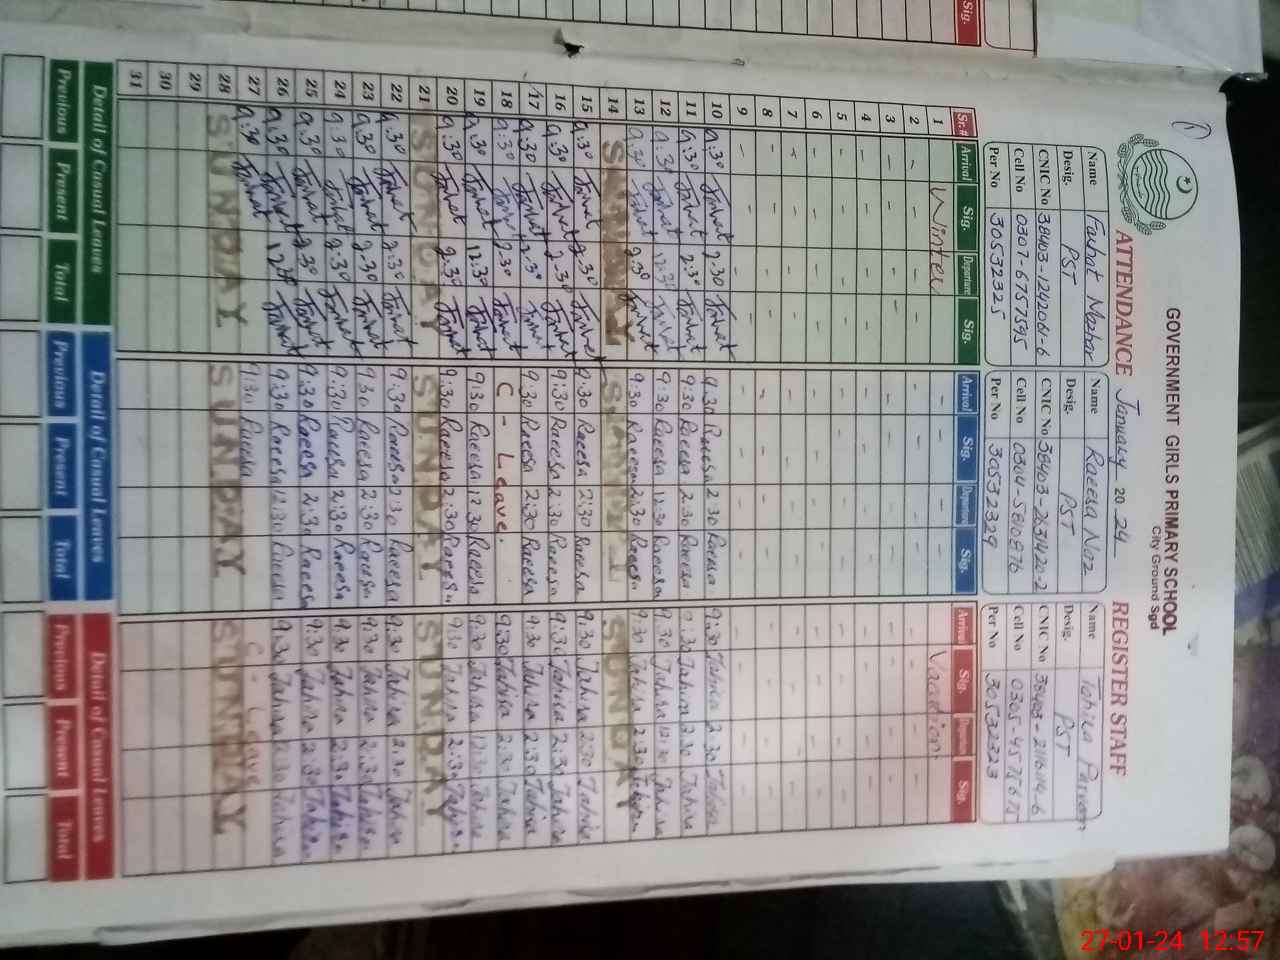 GOVERNMENT GIRLS PRIMARY SCHOOL
City Ground Sgd
ATTENDANCE January 2024 REGISTER STAFF
Name Farhat Name Raeesa Naz Name Tahira Parveen
Desig. PST Desig. PST Desig. PST
CNIC No CNIC No CNIC No
Cell No 0307-6757595 Cell No Cell No
Per No 30532325 Per No 30532329 Per No 30532323
Sr.# Arrival Sig. Departure Sig. Arrival Sig. Departure Sig. Arrival Sig. Departure Sig.
1 Winter Vacation
2
3
4
5
6
7
8
9
10 9:30 Farhat 2:30 Farhat 9:30 Raeesa 2:30 Raeesa 9:30 Tahira 2:30 Tahira
11 9:30 Farhat 2:30 Farhat 9:30 Raeesa 2:30 Raeesa 9:30 Tahira 2:30 Tahira
12 9:30 Farhat 12:30 Farhat 9:30 Raeesa 12:30 Raeesa 9:30 Tahira 12:30 Tahira
13 9:30 Farhat 2:30 Farhat 9:30 Raeesa 2:30 Raeesa 9:30 Tahira 2:30 Tahira
14 SUNDAY
15 9:30 Farhat 2:30 Farhat 9:30 Raeesa 2:30 Raeesa 9:30 Tahira 2:30 Tahira
16 9:30 Farhat 2:30 Farhat 9:30 Raeesa 2:30 Raeesa 9:30 Tahira 2:30 Tahira
17 9:30 Farhat 2:30 Farhat 9:30 Raeesa 2:30 Raeesa 9:30 Tahira 2:30 Tahira
18 9:30 Farhat 2:30 Farhat C - Leave. 9:30 Tahira 2:30 Tahira
19 9:30 Farhat 12:30 Farhat 9:30 Raeesa 12:30 Raeesa 9:30 Tahira 12:30 Tahira
20 9:30 Farhat 2:30 Farhat 9:30 Raeesa 2:30 Raeesa 9:30 Tahira 2:30 Tahira
21 SUNDAY SUNDAY SUNDAY
22 9:30 Farhat 2:30 Farhat 9:30 Raeesa 2:30 Raeesa 9:30 Tahira 2:30 Tahira
23 9:30 Farhat 2:30 Farhat 9:30 Raeesa 2:30 Raeesa 9:30 Tahira 2:30 Tahira
24 9:30 Farhat 2:30 Farhat 9:30 Raeesa 2:30 Raeesa 9:30 Tahira 2:30 Tahira
25 9:30 Farhat 2:30 Farhat 9:30 Raeesa 2:30 Raeesa 9:30 Tahira 2:30 Tahira
26 9:30 Farhat 12:30 Farhat 9:30 Raeesa 12:30 Raeesa 9:30 Tahira 12:30 Tahira
27 9:30 Farhat 9:30 Raeesa C - Leave
28 SUNDAY SUNDAY SUNDAY
29
30
31
Detail of Casual Leaves Detail of Casual Leaves Detail of Casual Leaves
Previous Present Total Previous Present Total Previous Present Total
Sig.
27-01-24 12:57